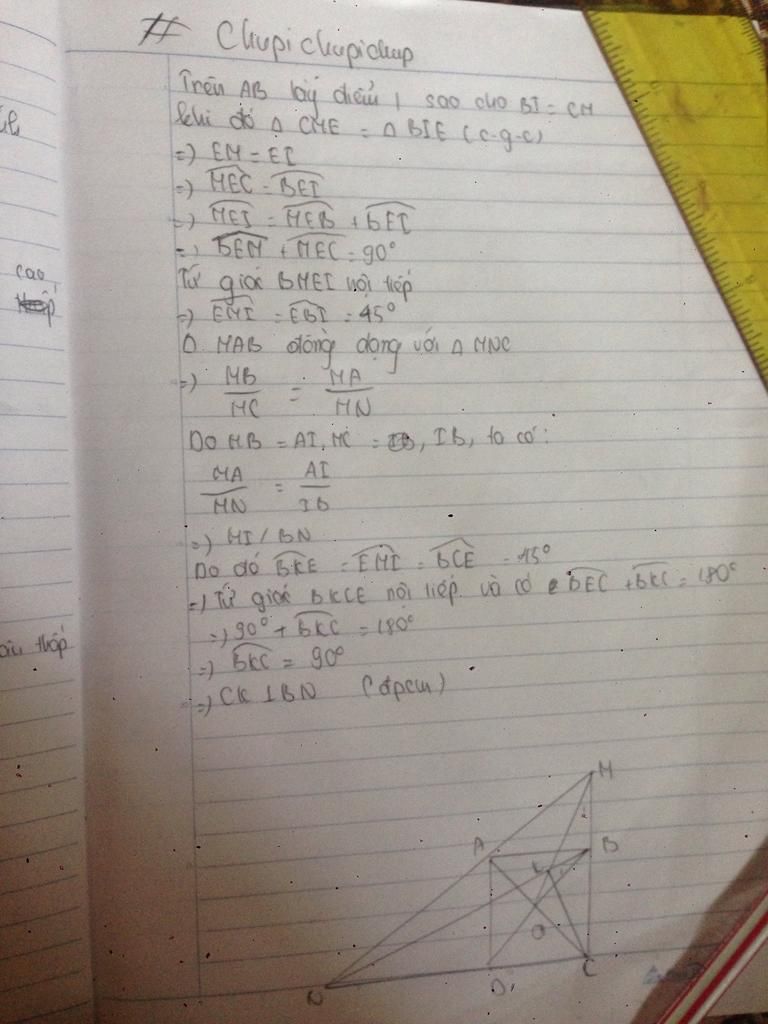 # Chupichupichup
Trên AB lấy điểm I sao cho BI = CM
khi đó Δ CME = Δ BIE (c-g-c)
=) EM = EI
=) MEC = BEI
=) MEI = MEB + BEI
=) BEM + MEC = 90°
Tứ giác BMEI nội tiếp
=) EMI = EBI = 45°
Δ MAB đồng dạng với Δ MNC
=) MB/MC = MA/MN
Do MB = AI, MC = IB, ta có:
MA/MN = AI/IB
=) MI/BN
Do đó BKE = EMI = BCE = 45°
=) Tứ giác BKCE nội tiếp và có BEC + BKC = 180°
=) 90° + BKC = 180°
=) BKC = 90°
=) CK ⊥ BN (đpcm)
cao,
thấp
M
A B
O
N D C